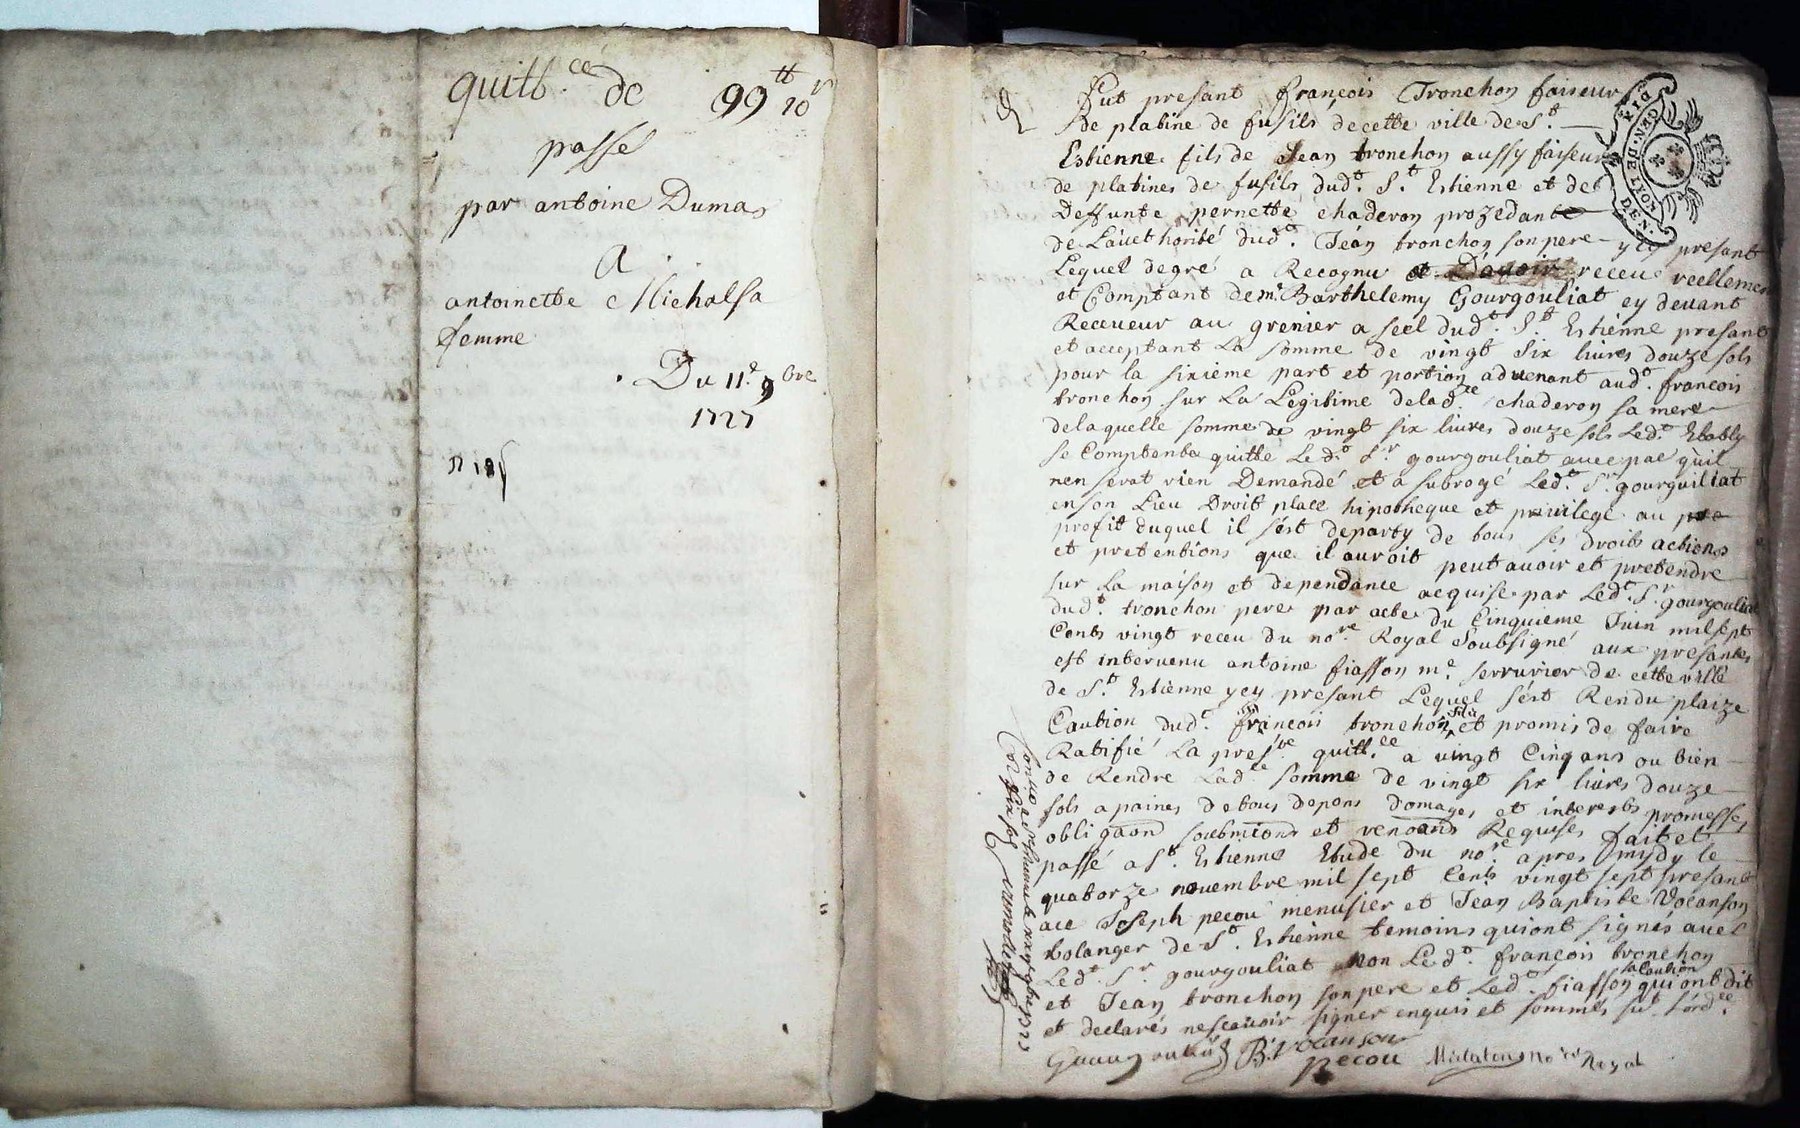 quitt.ce de 99tt 10s
passé
par antoine Dumas
A
antoinette Michalsa
femme
Du 11.e 9bre
1727
Fut presant françois Tronchon faiseur
de platine de fusils de cette ville de St.
Estienne fils de Jean tronchon aussy faiseur
de platines de fusils dudt. St. Estienne et de
Deffunte pernette chaderon prozedant
de Lauethorité dudt. Jean tronchon son pere y ey presant
Lequel degré a Recognu D'auoir receu reellemen
et Comptant de mr. Barthelemy Gourgouliat ey deuant
Receueur au grenier a seel dudt. St. Estienne presant
et acceptant La somme de vingt Six liures douze sols
pour la sixieme part et portion aduenant audt. françois
tronchon sur La Legitime de lade. chaderon sa mere
de laquelle somme de vingt six liures douze sols Ledt. Etably
se Comptente quitte Ledt. Sr gourgouliat auec pae quil
nen serat rien Demandé et a subrogé Ledt. Sr. gourguiliat
en son Lieu Droit place hipotheque et priuilege au
profit duquel il s'est departy de tous ses droits actions
et pretentions que il auroit peut auoir et pretendre
sur La maison et dependance acquise par Ledt. Sr. gourgouliat
dudt. tronchon pere par acte du Cinquieme Juin mil sept
Cents vingt receu du nore. Royal Soubsigné aux presantes
est interuenu antoine fiasson me. serrurier de cette ville
de St. Estienne yey presant Lequel s'est Rendu plaize
Caution dudt. françois tronchon fils et promis de faire
Ratifié La preste quitt.ce a vingt Cinq ans ou bien
de Rendre Lade somme de vingt six liures douze
sols a paines de tous depens domages et interests promesses
obligaon soubmions et renoans Requises fait et
passé a St. Estienne Etude du nore apres mydy le
quatorze nouembre mil sept Cents vingt sept presant
ace Joseph pecou menusier et Jean Baptiste Vocanson
bolanger de St. Estienne temoins qui ont signés auec
Ledt. Sr gourgouliat Non Ledt. françois tronchon
et Jean tronchon son pere et Ledt. fiasson sa Caution qui ont dit
et declarés ne scauoir signer enquis et sommés
B. Vocanson
Pecou
Royal
GEN. DE LYON
DEN.